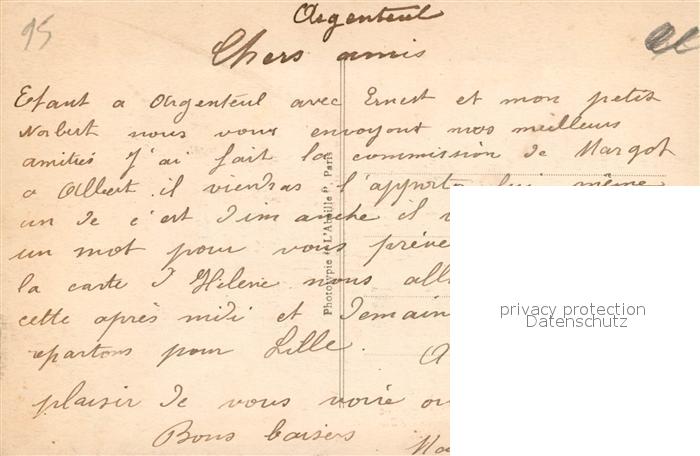 95
Argenteuil
Chers amis
Etant a Argenteuil avec Ernest et mon petit
Norbert nous vous envoyont nos meilleurs
amitiés J'ai fait la commission de Margot
a Albert il viendras l'apporter lui même
un de c'est dimanche il
un mot pour vous préve
la carte d'Hélène nous all
cette après midi et demain
repartons pour Lille. A
plaisir de vous voire ou
Bons baisers
Phototypie "L'Abeille", Paris
privacy protection
Datenschutz